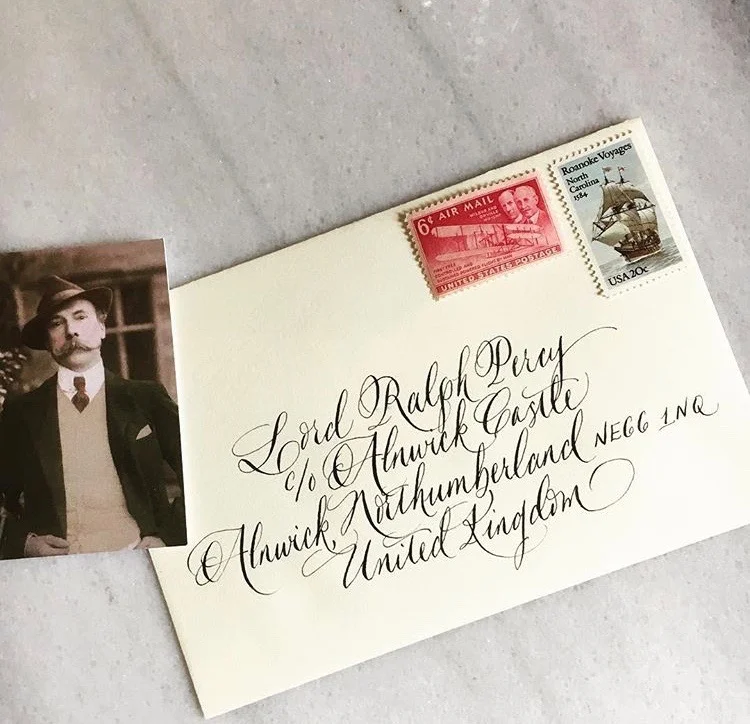 6¢ AIR MAIL
WILBUR AND
ORVILLE
WRIGHT
UNITED STATES POSTAGE
Roanoke Voyages
North
Carolina
1584
USA 20c
Lord Ralph Percy
c/o Alnwick Castle
Alnwick, Northumberland NE66 1NQ
United Kingdom